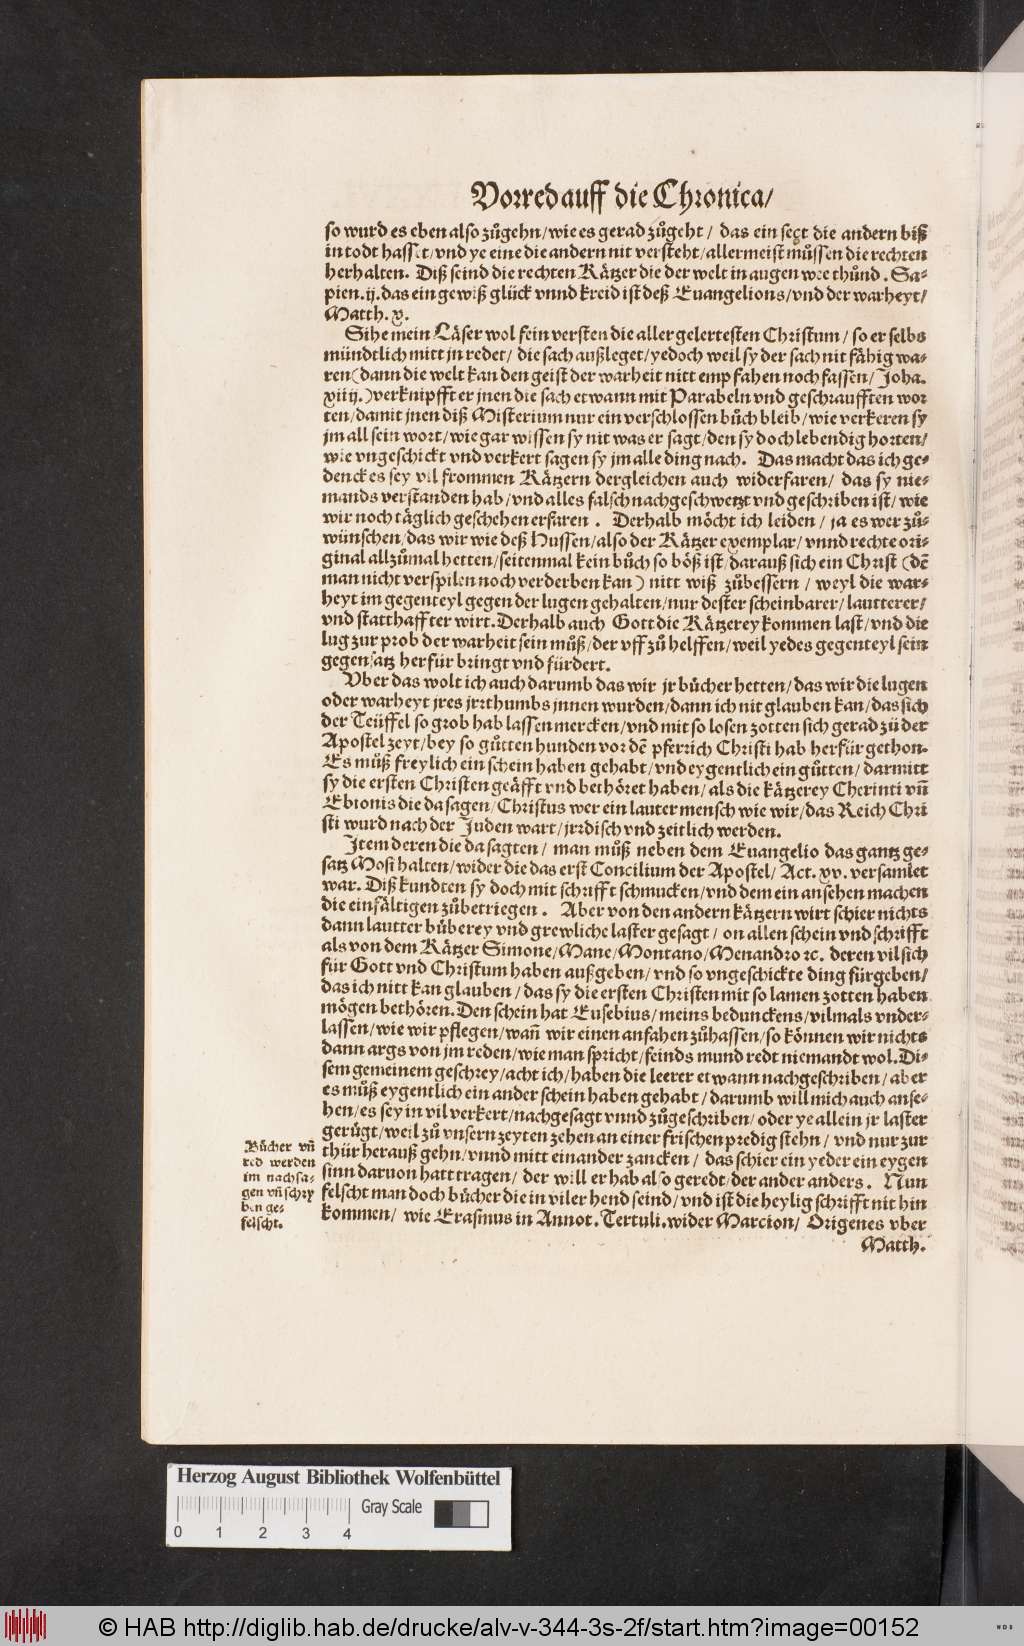 Vorred auff die Chronica/
so wurd es eben also zůgehn/wie es gerad zůgeht/ das ein sect die andern biß
in todt hasset/vnd ye eine die andern nit versteht/allermeist můssen die rechten
herhalten. Diß seind die rechten Kätzer die der welt in augen wee thůnd. Sa-
pien.ij.das ein gewiß glück vnnd kreid ist deß Euangelions/vnd der warheyt/
Matth.v.
Sihe mein Läser wol fein versten die aller gelertesten Christum/so er selbs
mündtlich mitt jn redet/ die sach außleget/yedoch weil sy der sach nit fähig wa-
ren(dann die welt kan den geist der warheit nitt empfahen noch fassen/Joha.
xiiij.)verknipfft er jnen die sach etwann mit Parabeln vnd geschraufften wor
ten/damit jnen diß Misterium nur ein verschlossen bůch bleib/wie verkeren sy
jm all sein wort/wie gar wissen sy nit was er sagt/den sy doch lebendig horten/
wie vngeschickt vnd verkert sagen sy jm alle ding nach. Das macht das ich ge-
denck es sey vil frommen Kätzern dergleichen auch widerfaren/ das sy nie-
mands verstanden hab/vnd alles falsch nachgeschwetzt vnd geschriben ist/wie
wir noch täglich geschehen erfaren. Derhalb möcht ich leiden/ ja es wer zů-
wünschen/das wir wie deß Hussen/also der Kätzer exemplar/vnnd rechte ori-
ginal allzůmal hetten/seitenmal kein bůch so böß ist/darauß sich ein Christ (dē
man nicht verspilen noch verderben kan) nitt wiß zůbessern/ weyl die war-
heyt im gegenteyl gegen der lugen gehalten/nur dester scheinbarer/lautterer/
vnd statthaffter wirt.Derhalb auch Gott die Kätzerey kommen last/vnd die
lug zur prob der warheit sein můß/der vff zů helffen/weil yedes gegenteyl sein
gegensatz herfür bringt vnd fürdert.
Vber das wolt ich auch darumb das wir jr bůcher hetten/das wir die lugen
oder warheyt jres jrrthumbs jnnen wurden/dann ich nit glauben kan/das sich
der Teüffel so grob hab lassen mercken/vnd mit so losen zotten sich gerad zů der
Apostel zeyt/bey so gůtten hunden vor dē pferrich Christi hab herfür gethon.
Es můß freylich ein schein haben gehabt/vnd eygentlich ein gůtten/darmitt
sy die ersten Christen geäfft vnd bethöret haben/als die kätzerey Cherinti vñ
Ebionis die da sagen/Christus wer ein lauter mensch wie wir/das Reich Chri
sti wurd nach der Juden wart/jrrdisch vnd zeitlich werden.
Jtem deren die da sagten/ man můß neben dem Euangelio das gantz ge-
satz Mosi halten/wider die das erst Concilium der Apostel/Act.xv.versamlet
war. Diß kundten sy doch mit schrifft schmucken/vnd dem ein ansehen machen
die einfältigen zůbetriegen. Aber von den andern kätzern wirt schier nichts
dann lautter bůberey vnd grewliche laster gesagt/ on allen schein vnd schrifft
als von dem Kätzer Simone/Mane/Montano/Menandro ꝛc. deren vil sich
für Gott vnd Christum haben außgeben/vnd so vngeschickte ding fürgeben/
das ich nitt kan glauben/das sy die ersten Christen mit so lamen zotten haben
mögen bethören.Den schein hat Eusebius/meins bedunckens/vilmals vnder-
lassen/wie wir pflegen/wañ wir einen anfahen zůhassen/so können wir nichts
dann args von jm reden/wie man spricht/feinds mund redt niemandt wol.Di-
sem gemeinem geschrey/acht ich/haben die leerer etwann nachgeschriben/aber
es můß eygentlich ein ander schein haben gehabt/darumb will mich auch anse-
hen/es sey in vil verkert/nachgesagt vnnd zůgeschriben/oder ye allein jr laster
gerügt/weil zů vnsern zeyten zehen an einer frischen predig stehn/ vnd nur zur
thür herauß gehn/vnnd mitt einander zancken/ das schier ein yeder ein eygen
sinn daruon hatt tragen/ der will er hab also geredt/der ander anders. Nun
felscht man doch bůcher die in viler hend seind/vnd ist die heylig schrifft nit hin
kommen/ wie Erasmus in Annot.Tertuli.wider Marcion/ Origenes vber
Matth.
Bůcher vñ
red werden
im nachsa-
gen vñ schry
ben ge-
felscht.
Herzog August Bibliothek Wolfenbüttel
Gray Scale
0 1 2 3 4
© HAB http://diglib.hab.de/drucke/alv-v-344-3s-2f/start.htm?image=00152